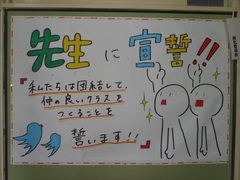 先生に宣誓!!
私たちは団結して、
仲の良いクラスを
つくることを
誓います!!